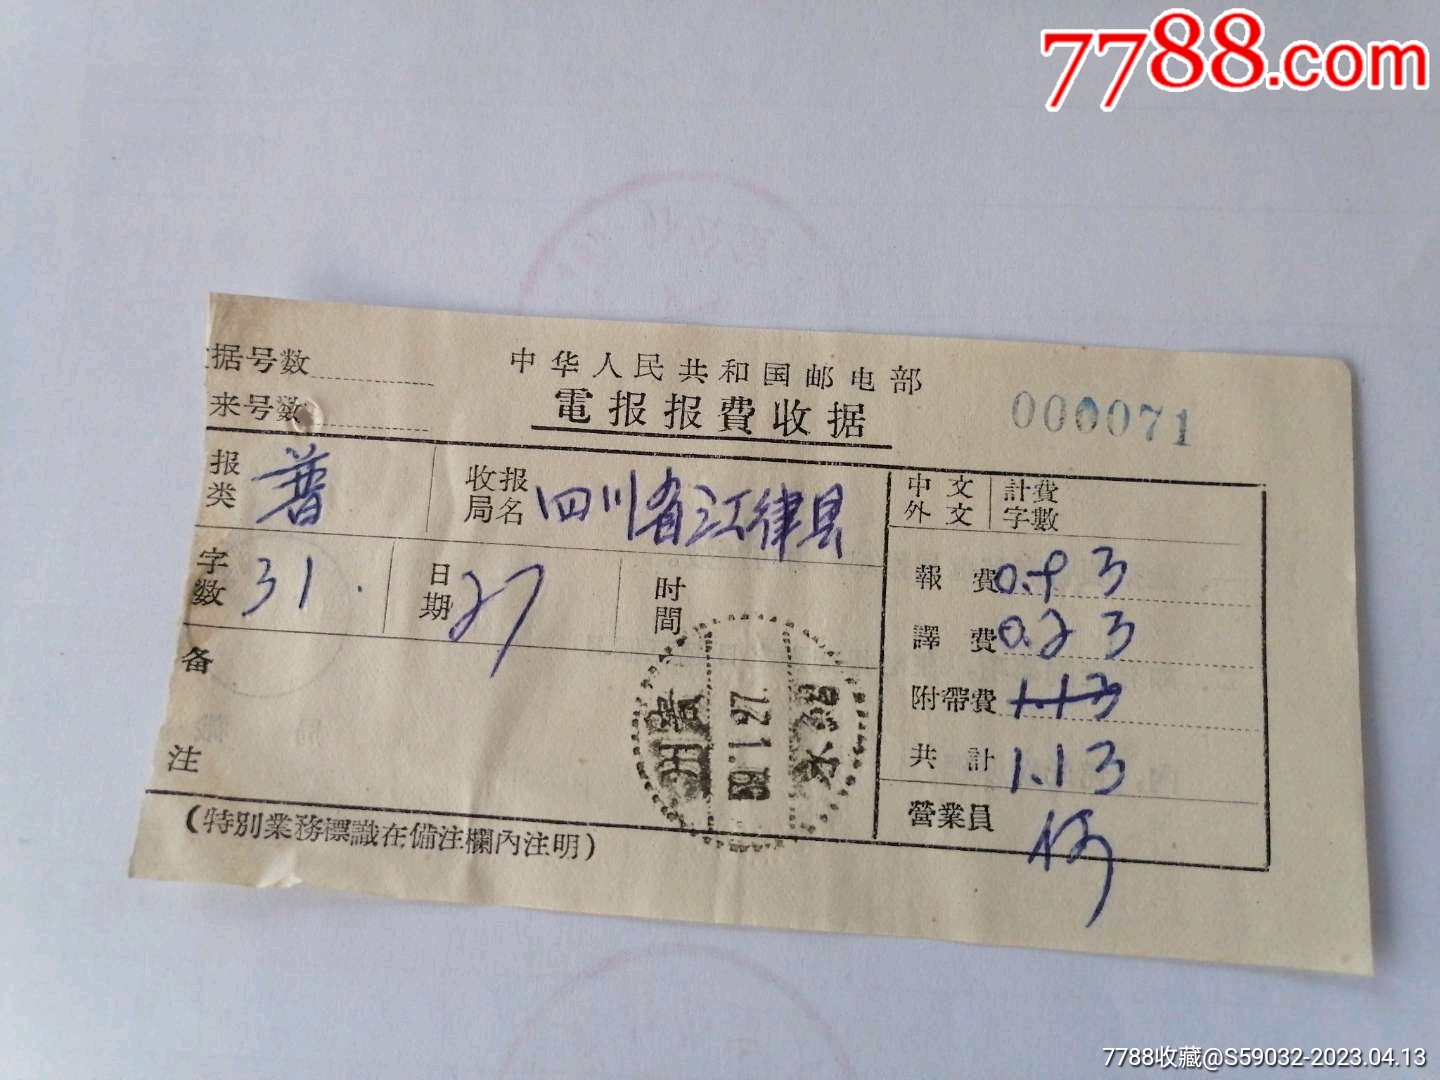 7788.com
据号数
中华人民共和国邮电部
来号数
電报报費收据
000071
报类 普
收报局名 四川省江律县
中文 外文 計費字數
字数 31.
日期 27
时間
報費 0.93
譯費 0.23
备注
附帶費 1.13
共計 1.13
贵州
27.1.69
水
營業員 何
(特別業務標識在備注欄內注明)
7788收藏@S59032-2023.04.13